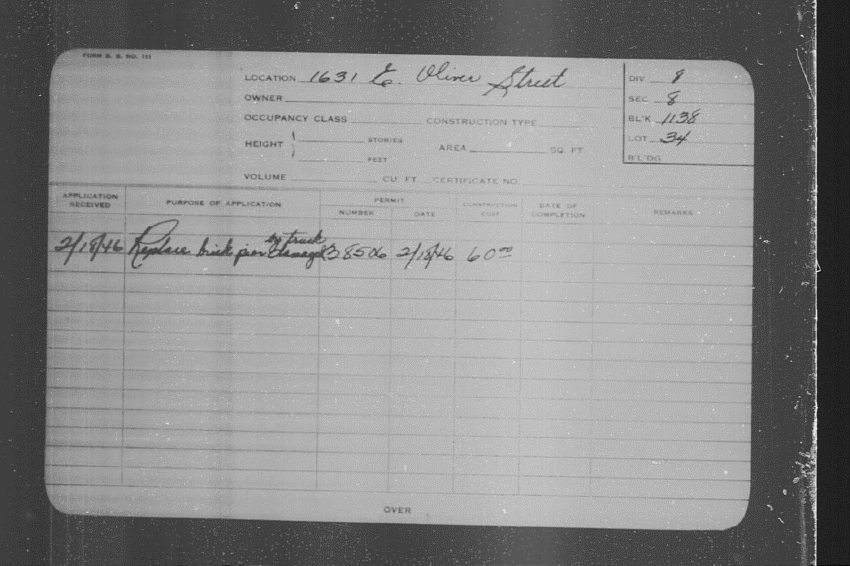 FORM B. B. NO. 111
LOCATION 1631 E. Oliver Street
DIV 8
OWNER
SEC 8
OCCUPANCY CLASS CONSTRUCTION TYPE
BL'K 1138
HEIGHT STORIES AREA SQ. FT.
LOT 34
FEET
B'L'DG
VOLUME CU. FT. CERTIFICATE NO.
APPLICATION RECEIVED PURPOSE OF APPLICATION PERMIT CONSTRUCTION COST DATE OF COMPLETION REMARKS
NUMBER DATE
by truck
2/18/46 Replace brick pier damaged 38506 2/18/46 60.00
OVER